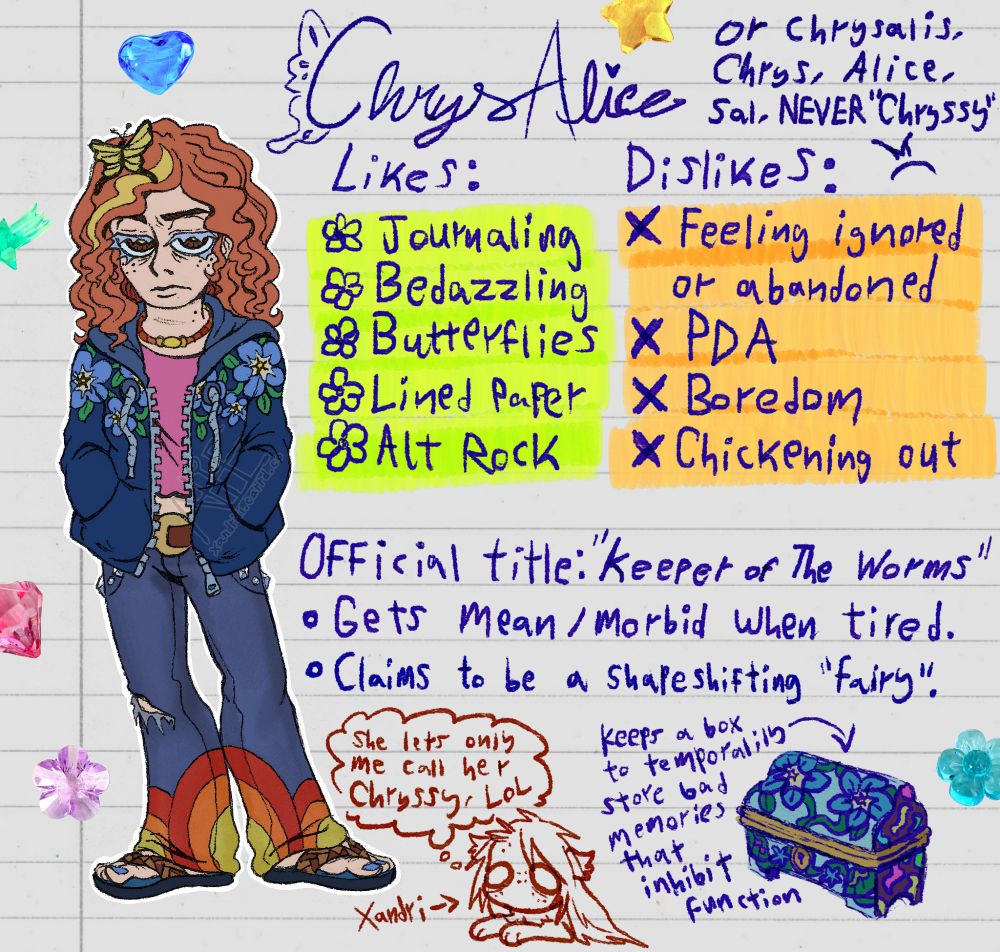 ChrysAlice
or Chrysalis,
Chrys, Alice,
Sal, NEVER "Chryssy"
Likes:
Journaling
Bedazzling
Butterflies
Lined Paper
Alt Rock
Dislikes:
Feeling ignored
or abandoned
PDA
Boredom
Chickening out
Official title: "Keeper of The Worms"
Gets mean/morbid when tired.
Claims to be a shapeshifting "fairy".
She lets only
me call her
Chryssy, LOL
Xandri
keeps a box
to temporalily
store bad
memories
that
inhibit
function